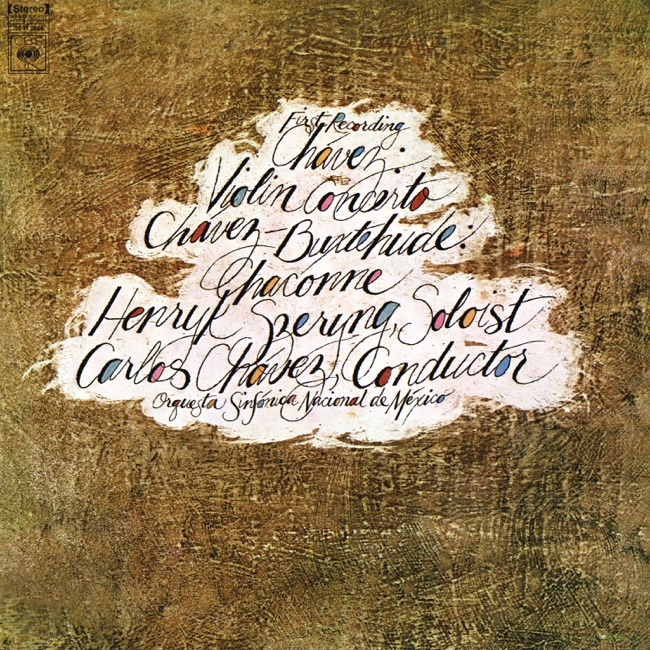 [Stereo]
First Recording
Chávez:
Violin Concerto
Chávez-Buxtehude:
Chaconne
Henryk Szeryng, Soloist
Carlos Chávez, Conductor
Orquesta Sinfónica Nacional de México